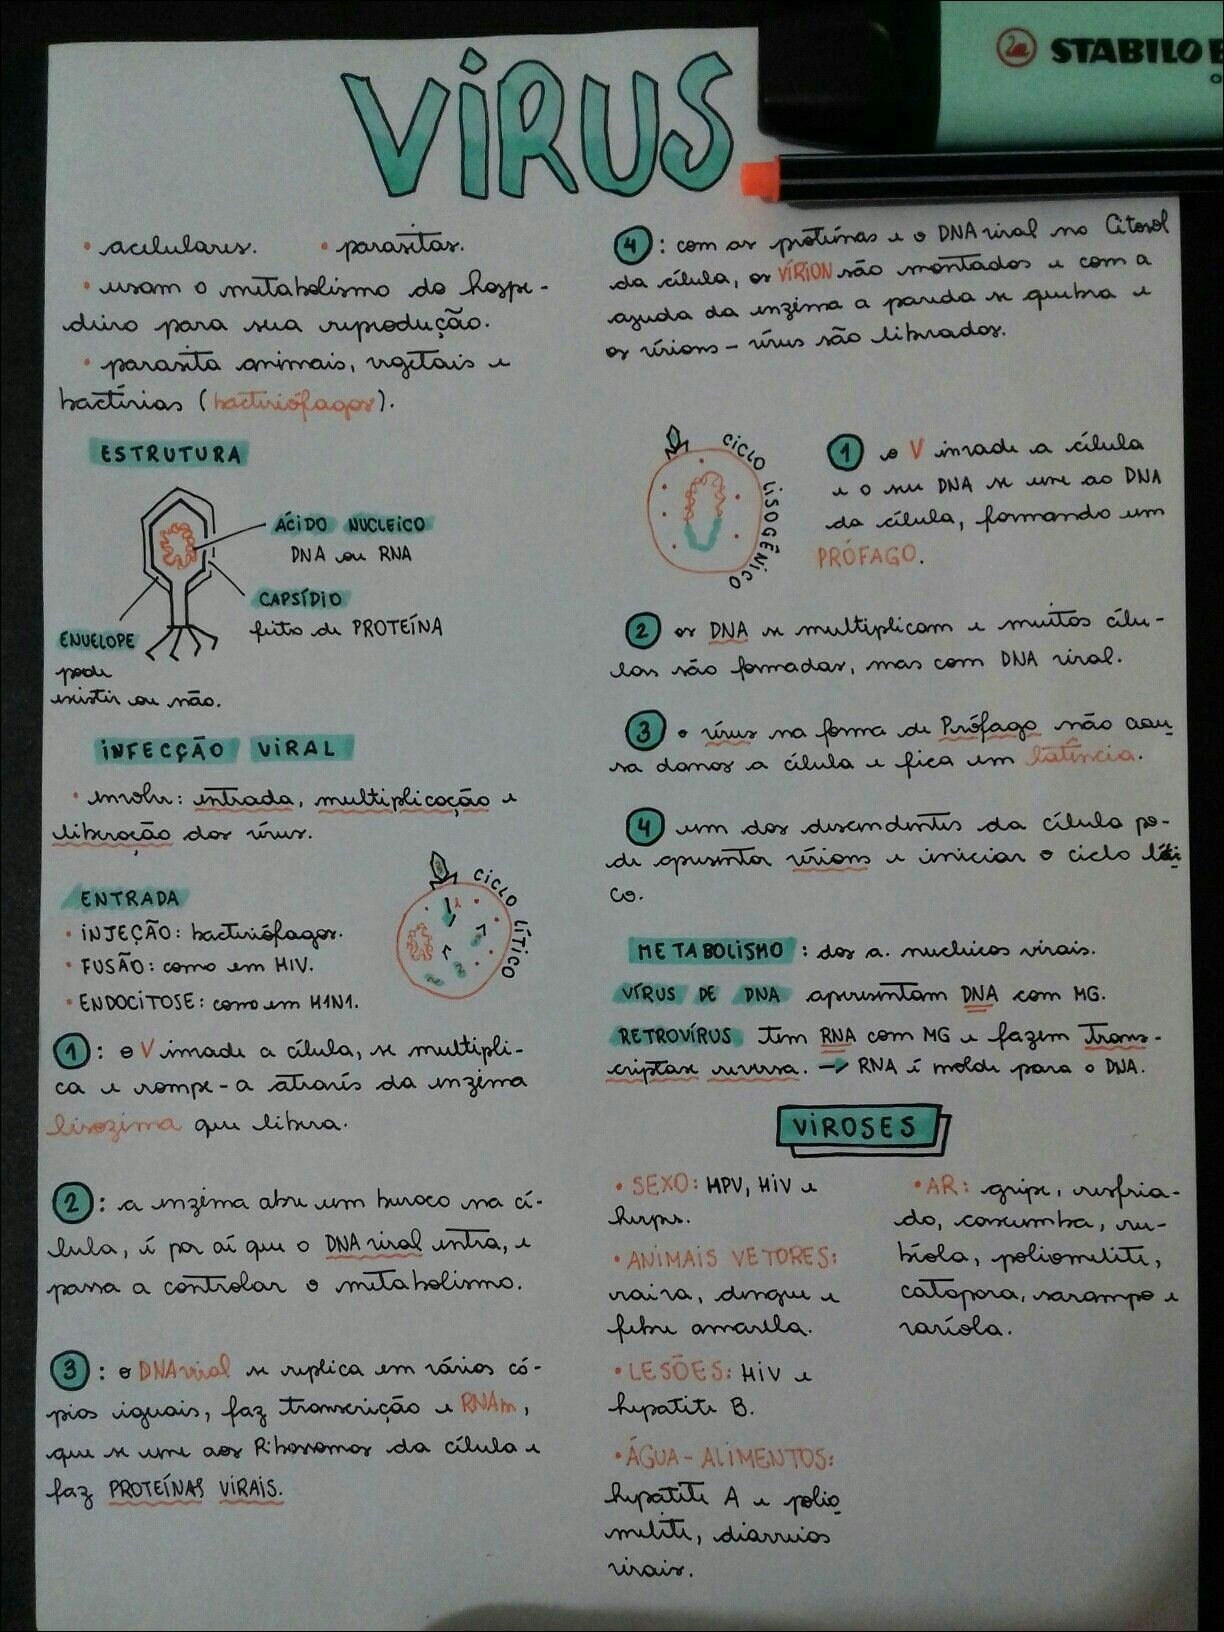 VÍRUS
STABILO
• acelulares. • parasitas.
• usam o metabolismo do hospe-
deiro para sua reprodução.
• parasita animais, vegetais e
bactérias (bacteriófagos).
ESTRUTURA
ÁCIDO NUCLEICO
DNA ou RNA
CAPSÍDIO
feito de PROTEÍNA
ENVELOPE
pode
existir ou não.
INFECÇÃO VIRAL
• envolve: entrada, multiplicação e
liberação dos vírus.
ENTRADA
• INJEÇÃO: bacteriófagos.
• FUSÃO: como em HIV.
• ENDOCITOSE: como em H1N1.
CICLO LÍTICO
1: o V invade a célula, se multipli-
ca e rompe-a através da enzima
lisozima que libera.
2: a enzima abre um buraco na cé-
lula, é por aí que o DNA viral entra, e
passa a controlar o metabolismo.
3: o DNA viral se replica em vários có-
pias iguais, faz transcrição e RNAm,
que se une aos Ribossomos da célula e
faz PROTEÍNAS VIRAIS.
4: com as proteínas e o DNA viral no Citosol
da célula, os VÍRION são montados e com a
ajuda da enzima a parede se quebra e
os vírions - vírus são liberados.
CICLO LISOGÊNICO
1 o V invade a célula
e o seu DNA se une ao DNA
da célula, formando um
PRÓFAGO.
2 os DNA se multiplicam e muitos célu-
las são formadas, mas com DNA viral.
3 o vírus na forma de Prófago não cau
sa danos a célula e fica em latência.
4 um dos descendentes da célula po-
de apresentar vírions e iniciar o ciclo líti
co.
METABOLISMO: dos a. nucleicos virais.
VÍRUS DE DNA apresentam DNA com MG.
RETROVÍRUS tem RNA com MG e fazem Trans-
criptase reversa. → RNA é molde para o DNA.
VIROSES
• SEXO: HPV, HIV e
herpes.
• ANIMAIS VETORES:
raiva, dengue e
febre amarela.
• LESÕES: HIV e
hepatite B.
• ÁGUA - ALIMENTOS:
hepatite A e polio
melite, diarreias
virais.
• AR: gripe, resfria-
do, caxumba, ru-
béola, poliomelite,
catapora, sarampo e
varíola.